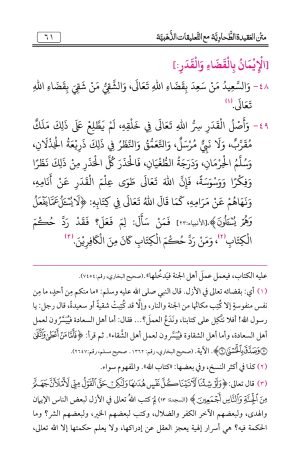 متن العقيدة الطحاوية مع التعليقات الذهبية
٦١
[الْإِيْمَانُ بِالْقَضَاءِ وَالْقَدَرِ:]
٤٨- وَالسَّعِيدُ مَنْ سَعِدَ بِقَضَاءِ اللهِ تَعَالَى، وَالشَّقِيُّ مَنْ شَقِيَ بِقَضَاءِ اللهِ
تَعَالَى.(١)
٤٩- وَأَصْلُ الْقَدَرِ سِرُّ اللهِ تَعَالَى فِي خَلْقِهِ، لَمْ يَطَّلِعْ عَلَى ذَلِكَ مَلَكٌ
مُقَرَّبٌ، وَلَا نَبِيٌّ مُرْسَلٌ، وَالتَّعَمُّقُ وَالنَّظَرُ فِي ذَلِكَ ذَرِيعَةُ الْخِذْلَانِ،
وَسُلَّمُ الْحِرْمَانِ، وَدَرَجَةُ الطُّغْيَانِ، فَالْحَذَرَ كُلَّ الْحَذَرِ مِنْ ذَلِكَ نَظَرًا
وَفِكْرًا وَوَسْوَسَةً، فَإِنَّ اللهَ تَعَالَى طَوَى عِلْمَ الْقَدَرِ عَنْ أَنَامِهِ،
وَنَهَاهُمْ عَنْ مَرَامِهِ، كَمَا قَالَ اللهُ تَعَالَى فِي كِتَابِهِ: ﴿لَا يُسْـَٔلُ عَمَّا يَفْعَلُ
وَهُمْ يُسْـَٔلُونَ﴾.[الأنبياء:٢٣] فَمَنْ سَأَلَ: لِمَ فَعَلَ؟ فَقَدْ رَدَّ حُكْمَ
الْكِتَابِ(٢)، وَمَنْ رَدَّ حُكْمَ الْكِتَابِ كَانَ مِنَ الْكَافِرِيْنَ.(٣)
عليه الكتاب، فيعمل عمل أهل الجنة فيدخلها». (صحيح البخاري، رقم:٧٤٥٤).
(١) أي: بقضائه تعالى في الأزل. قال النبي صلى الله عليه وسلم: «ما منكم من أحدٍ، ما من
نفس منفوسة إلا كُتِب مكانُها من الجنة والنار، وإلا قد كُتِبتْ شقيةً أو سعيدةً، قال رجل: يا
رسول الله! أفلا نتَّكِل على كتابنا، ونَدَعُ العملَ؟... فقال: أما أهل السعادة فيُيَسَّرُون لعمل
أهل السعادة، وأما أهل الشقاوة فيُيَسَّرُون لعمل أهل الشَّقاء». ثم قرأ: ﴿فَأَمَّا مَنْ أَعْطَى وَاتَّقَى
وَصَدَّقَ بِالْحُسْنَى﴾. الآية. (صحيح البخاري، رقم: ١٣٦٢. صحيح مسلم، رقم:٢٦٤٧).
(٢) كذا في أكثر النسخ، وفي بعضها: «كتاب الله». والمفهوم سواء.
(٣) قال تعالى: ﴿وَلَوْ شِئْنَا لَآتَيْنَا كُلَّ نَفْسٍ هُدَاهَا وَلَكِنْ حَقَّ الْقَوْلُ مِنِّي لَأَمْلَأَنَّ جَهَنَّمَ
مِنَ الْجِنَّةِ وَالنَّاسِ أَجْمَعِينَ﴾ (السجدة: ١٣) لِمَ كتب الله تعالى في الأزل لبعض الناس الإيمان
والهدى، ولبعضهم الآخر الكفر والضلال، وكتب لبعضهم الخير، ولبعضهم الشر؟ وما
الحكمة فيه؟ هي أسرار إلهية يعجز العقل عن إدراكها، ولا يعلم حكمتها إلا الله تعالى.